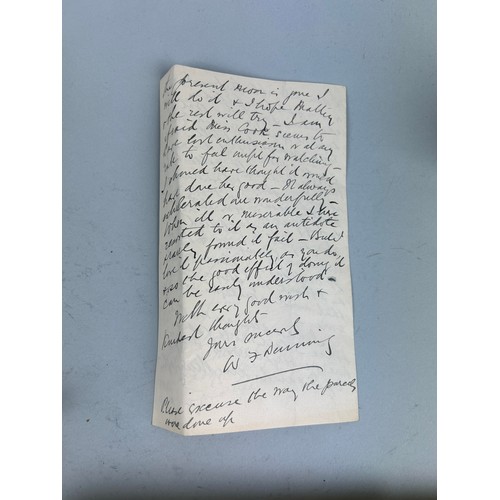 present moon is gone I
will do it & I hope
& the rest will try - I am
afraid Miss Cook seems to
have lost enthusiasm or at any
rate to feel unfit for watching -
I should have thought it would
have done her good - It always
me wonderfully -
When ill or miserable I have
resorted to it as an antidote
& rarely found it fail - But I
love it passionately, as you do
& so the good effect of doing it
can be easily understood -
With every good wish &
kindest thoughts
Yours sincerely
W F Denning
Please excuse the way the parcels
were done up